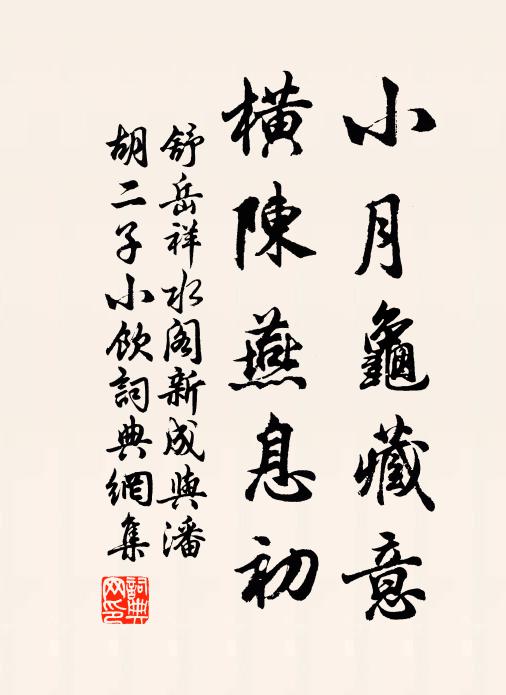 小月龜藏意
橫陳燕息初
舒岳祥水阁新成與潘
胡二子小飲詞典網集
詞典網印